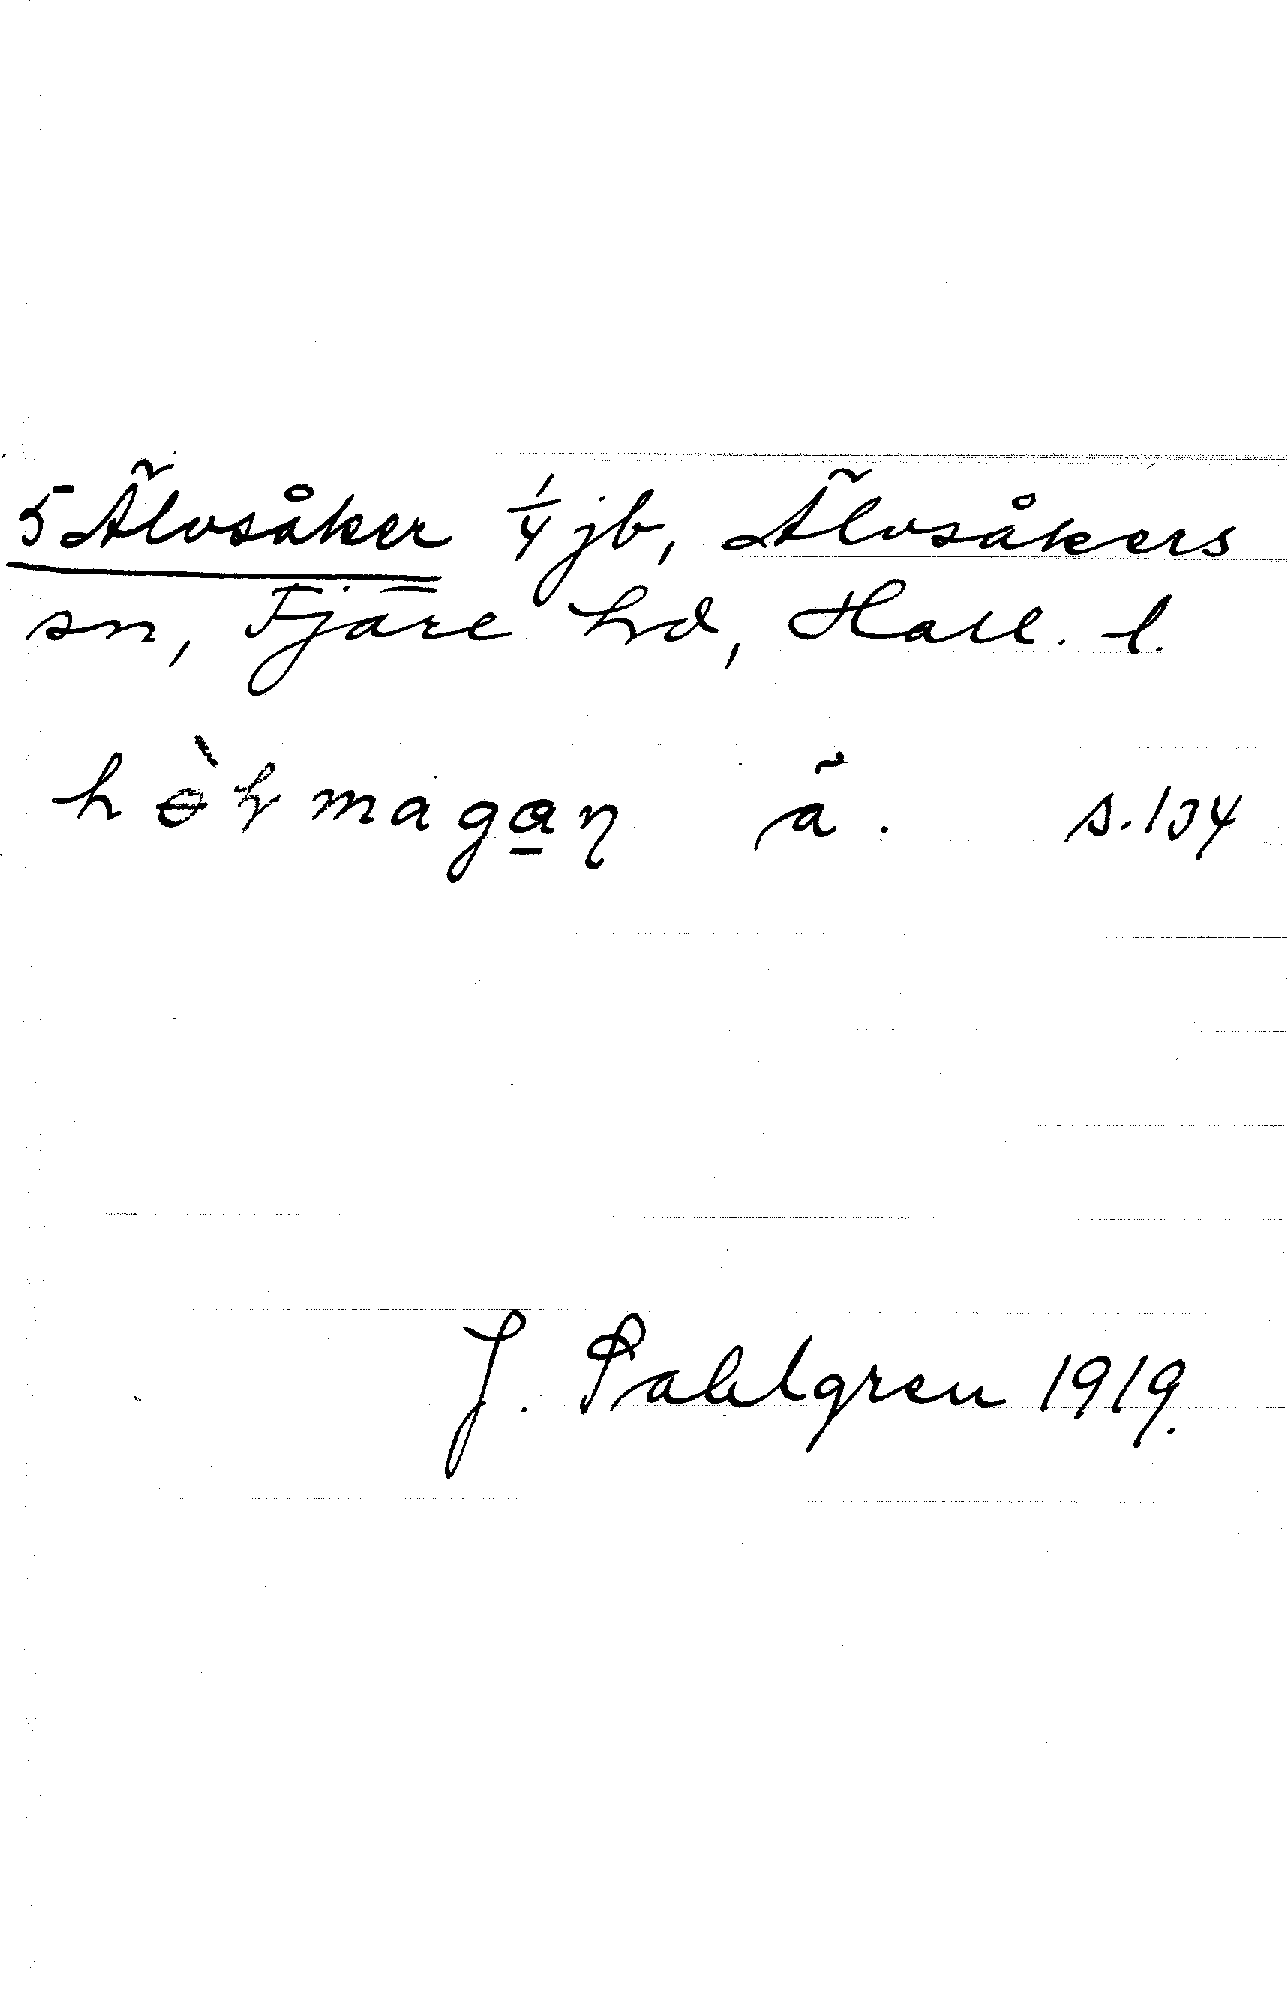 5 Älvsåker 1/4 jb, Älvsåkers
sn, Fjäre hd, Hall. l.
ä. s. 134
J. Sahlgren 1919.